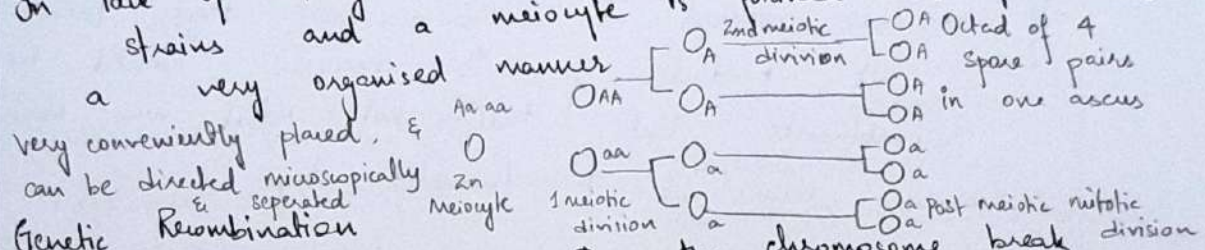 On
strains and a meiocyte is
a very organised manner
very conveniently placed, &
can be directed microscopically
& seperated
Genetic Recombination
Aa aa
2n
Meiocyte
AA
aa
1 meiotic
division
A
A
a
a
2nd meiotic
division
A
A
A
A
a
a
a
a
Octad of 4
spore pairs
in one ascus
post meiotic mitotic
division
chromosome break